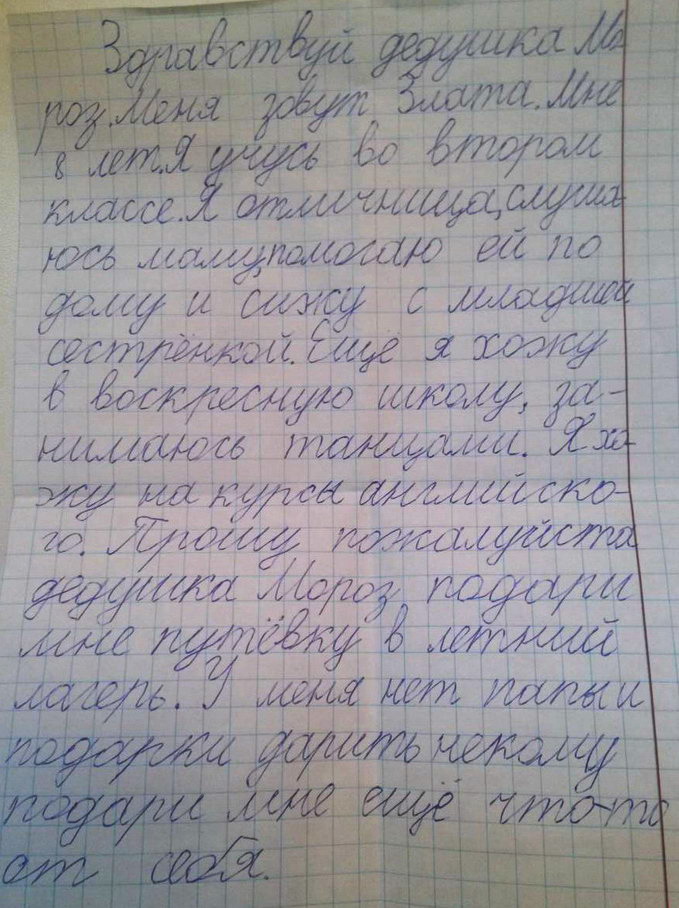 Здравствуй дедушка Мо
роз. Меня зовут Злата. Мне
8 лет. Я учусь во втором
классе. Я отличница, слуша-
юсь маму, помогаю ей по
дому и сижу с младшей
сестрёнкой. Ещё я хожу
в воскресную школу, за-
нимаюсь танцами. Я хо-
жу на курсы английско-
го. Прошу пожалуйста
дедушка Мороз подари
мне путёвку в летний
лагерь. У меня нет папы и
подарки дарить некому
подари мне ещё что-то
от себя.